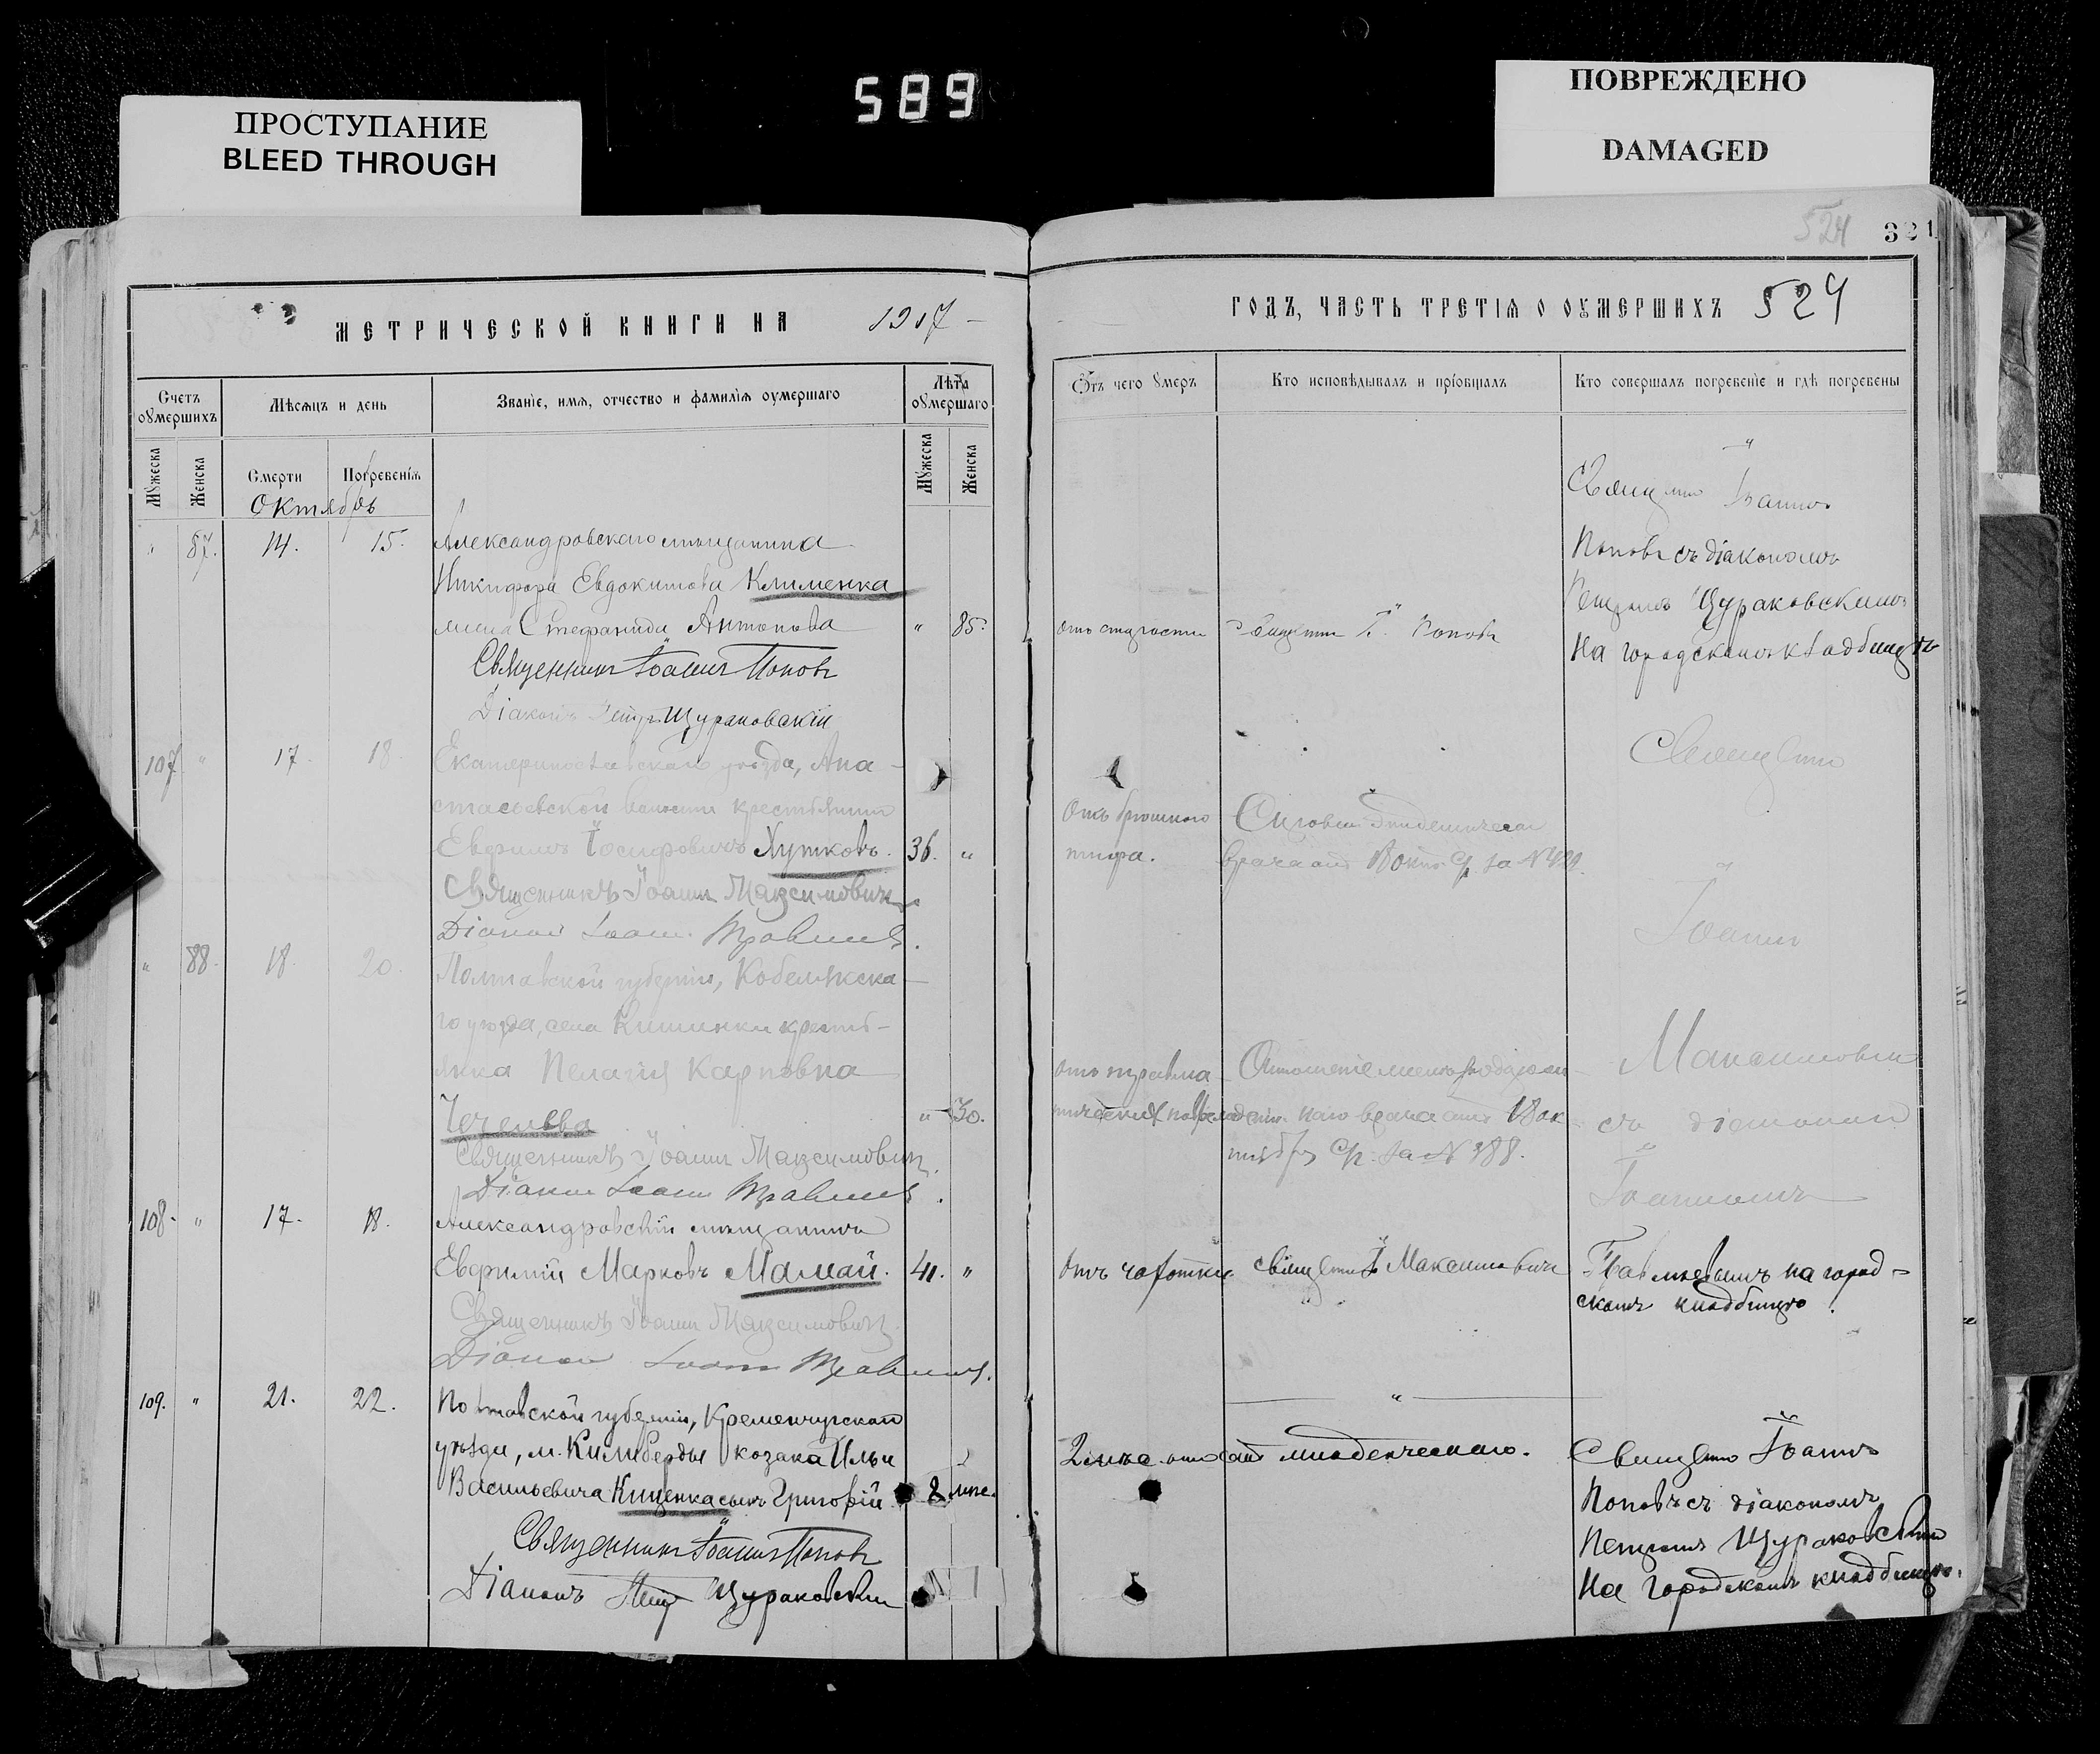 589
ПРОСТУПАНИЕ
BLEED THROUGH
ПОВРЕЖДЕНО
DAMAGED
524
321
МЕТРИЧЕСКОЙ КНИГИ НА 1907
Счетъ оумершихъ
Мѣсяцъ и день
Званіе, имя, отчество и фамилія оумершаго
Лѣта оумершаго
Мужеска
Женска
Смерти
Погребенія
Мужеска
Женска
Октябрь
87. 14. 15. Александровскаго мѣщанина
Никифора Евдокимова Клименка
жена Стефанида Антонова " 85.
Священникъ Іоаннъ Поповъ
Діаконъ Петръ Щураковскій
107 " 17. 18. Екатеринославскаго уѣзда, Ана-
стасьевской волости крестьянинъ
Евфимъ Іосифовичъ Хутковъ. 36. "
Священникъ Іоаннъ Максимовичъ
Діаконъ Іоаннъ
" 88. 18. 20. Полтавской губерніи, Кобелякска-
го уѣзда, села Кишинки кресть-
янка Пелагія Карповна
" 30.
Священникъ Іоаннъ Максимовичъ.
Діаконъ Іоаннъ
108. " 17. 18. Александровскій мѣщанинъ
Евфимій Марковъ Мамай. 41. "
Священникъ Іоаннъ Максимовичъ
Діаконъ Іоаннъ
109. " 21. 22. Полтавской губерніи, Кременчугскаго
уѣзда, м. Келеберды козака Ильи
Васильевича Кищенка сынъ Григорій 2 мѣс.
Священникъ Іоаннъ Поповъ
Діаконъ Петръ Щураковскій
ГОДЪ, ЧАСТЬ ТРЕТІЯ О ОУМЕРШИХЪ 524
Отъ чего умеръ
Кто исповѣдывалъ и пріобщалъ
Кто совершалъ погребеніе и гдѣ погребены
"
Священ Іоаннъ
Поповъ съ діакономъ
Петромъ Щураковскимъ
отъ старости І. Поповъ На городскомъ кладбищѣ
Священ
Отъ брюшного
тифа. врача отъ за №
Іоаннъ
Максимовичъ
отъ травма- Отношеніе
врача отъ 18 ок- съ діакономъ
тября с/г. за № 388.
Іоанномъ
отъ чахотки. священ І. Максимовичъ на город-
скомъ кладбищѣ.
"
отъ младенческаго. Священ Іоаннъ
Поповъ съ діакономъ
Петромъ Щураковскимъ
На городскомъ кладбищѣ.